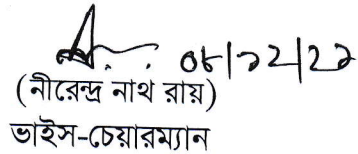 ০৮/১২/২১
(নীরেন্দ্র নাথ রায়)
ভাইস-চেয়ারম্যান